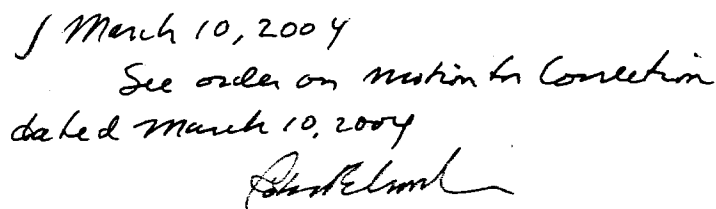 March 10, 2004
See order on Motion for Correction
dated March 10, 2004